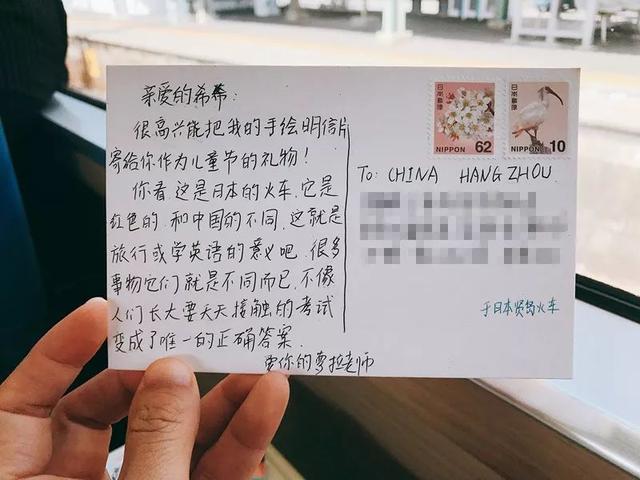 亲爱的希希:
很高兴能把我的手绘明信片
寄给你作为儿童节的礼物!
你看,这是日本的火车,它是
红色的,和中国的不同,这就是
旅行或学英语的意义吧,很多
事物它们就是不同而已,不像
人们长大要天天接触的考试
变成了唯一的正确答案.
爱你的萝拉老师
日本郵便
NIPPON 62
日本郵便
NIPPON 10
To: CHINA HANGZHOU
于日本贤岛火车